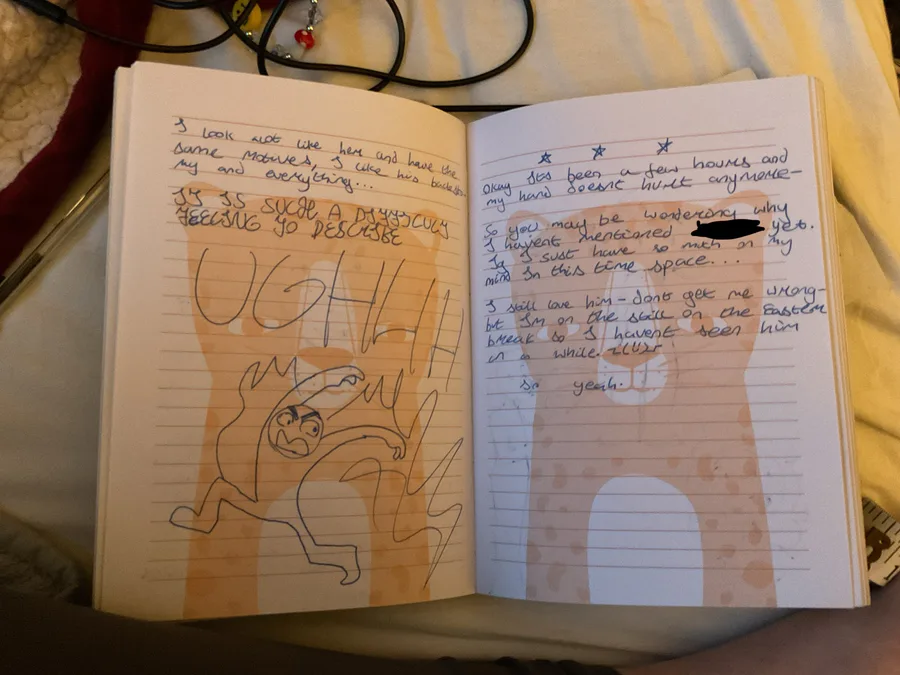 I look not like her and have the
same motives, I like his
my and everything...
IT IS SUCH A DIFFICULT
FEELING TO DESCRIBE
UGHHH
Okay its been a few hours and
my hand doesnt hurt anymore-
So you may be wondering why
I havent mentioned yet.
I just have so much on my
mind in this time space...
I still love him - dont get me wrong-
but I'm on the still on the Eastern
break so I havent seen him
in a while.
So yeah.